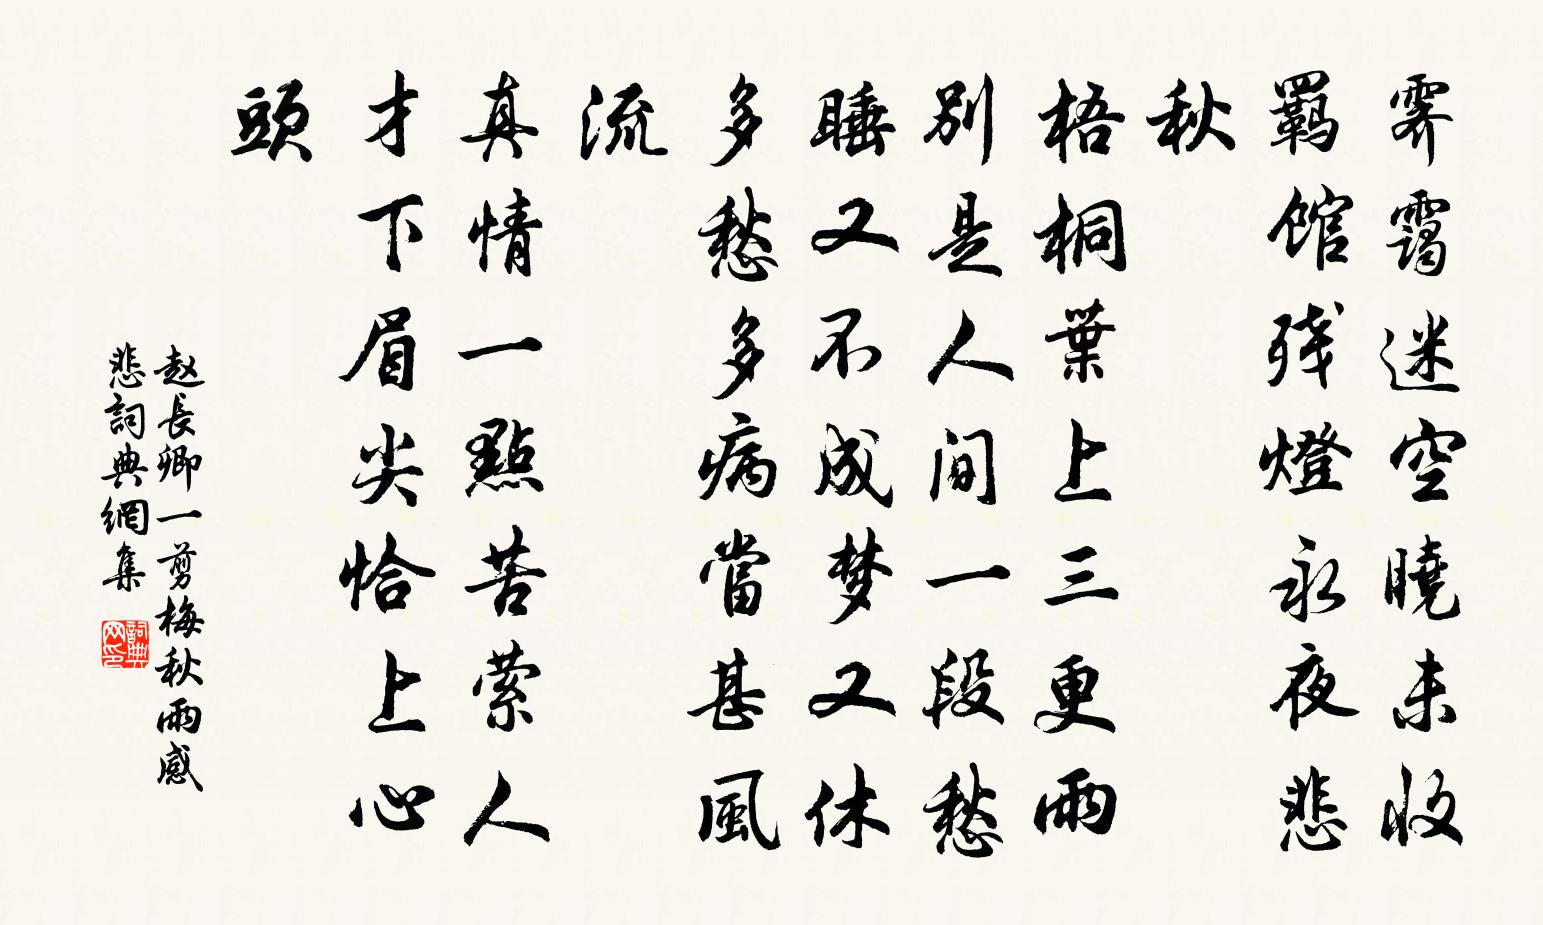 霽靄迷空曉未收
羇馆残燈永夜悲
秋
梧桐葉上三更雨
别是人间一段愁
睡又不成梦又休
多愁多病當甚風
流
真情一點苦萦人
才下眉尖恰上心
頭
赵長卿一剪梅秋雨感
悲詞典網集
詞典
网印